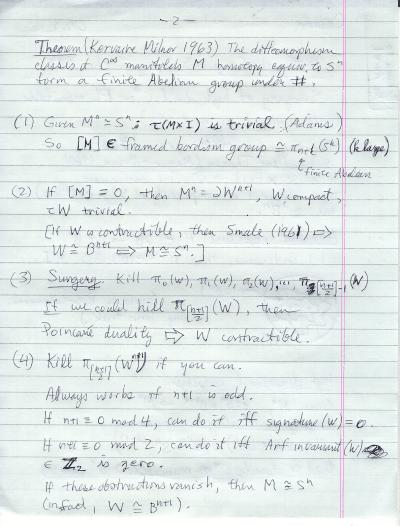 — 2 —
Theorem (Kervaire Milnor 1963) The diffeomorphism
classes of C^∞ manifolds M homotopy equiv. to S^n
form a finite Abelian group under #.
(1) Given M^n ≃ S^n : τ(M×I) is trivial. (Adams)
So [M] ∈ framed bordism group ≅ π_{n+k}(S^k) (k large)
finite Abelian
(2) If [M] = 0, then M^n = ∂W^{n+1}, W compact,
τW trivial.
[If W is contractible, then Smale (1961) ⇒
W ≅ B^{n+1} ⇒ M ≅ S^n.]
(3) Surgery. Kill π_0(W), π_1(W), π_2(W), ..., π_{[(n+1)/2]-1}(W)
If we could kill π_{[(n+1)/2]}(W), then
Poincaré duality ⇒ W contractible.
(4) Kill π_{[(n+1)/2]}(W^{n+1}) if you can.
Always works if n+1 is odd.
If n+1 ≡ 0 mod 4, can do it iff signature (W) = 0.
If n+1 ≡ 0 mod 2, can do it iff Arf invariant (W)
∈ Z_2 is zero.
If these obstructions vanish, then M ≅ S^n
(in fact, W ≅ B^{n+1}).